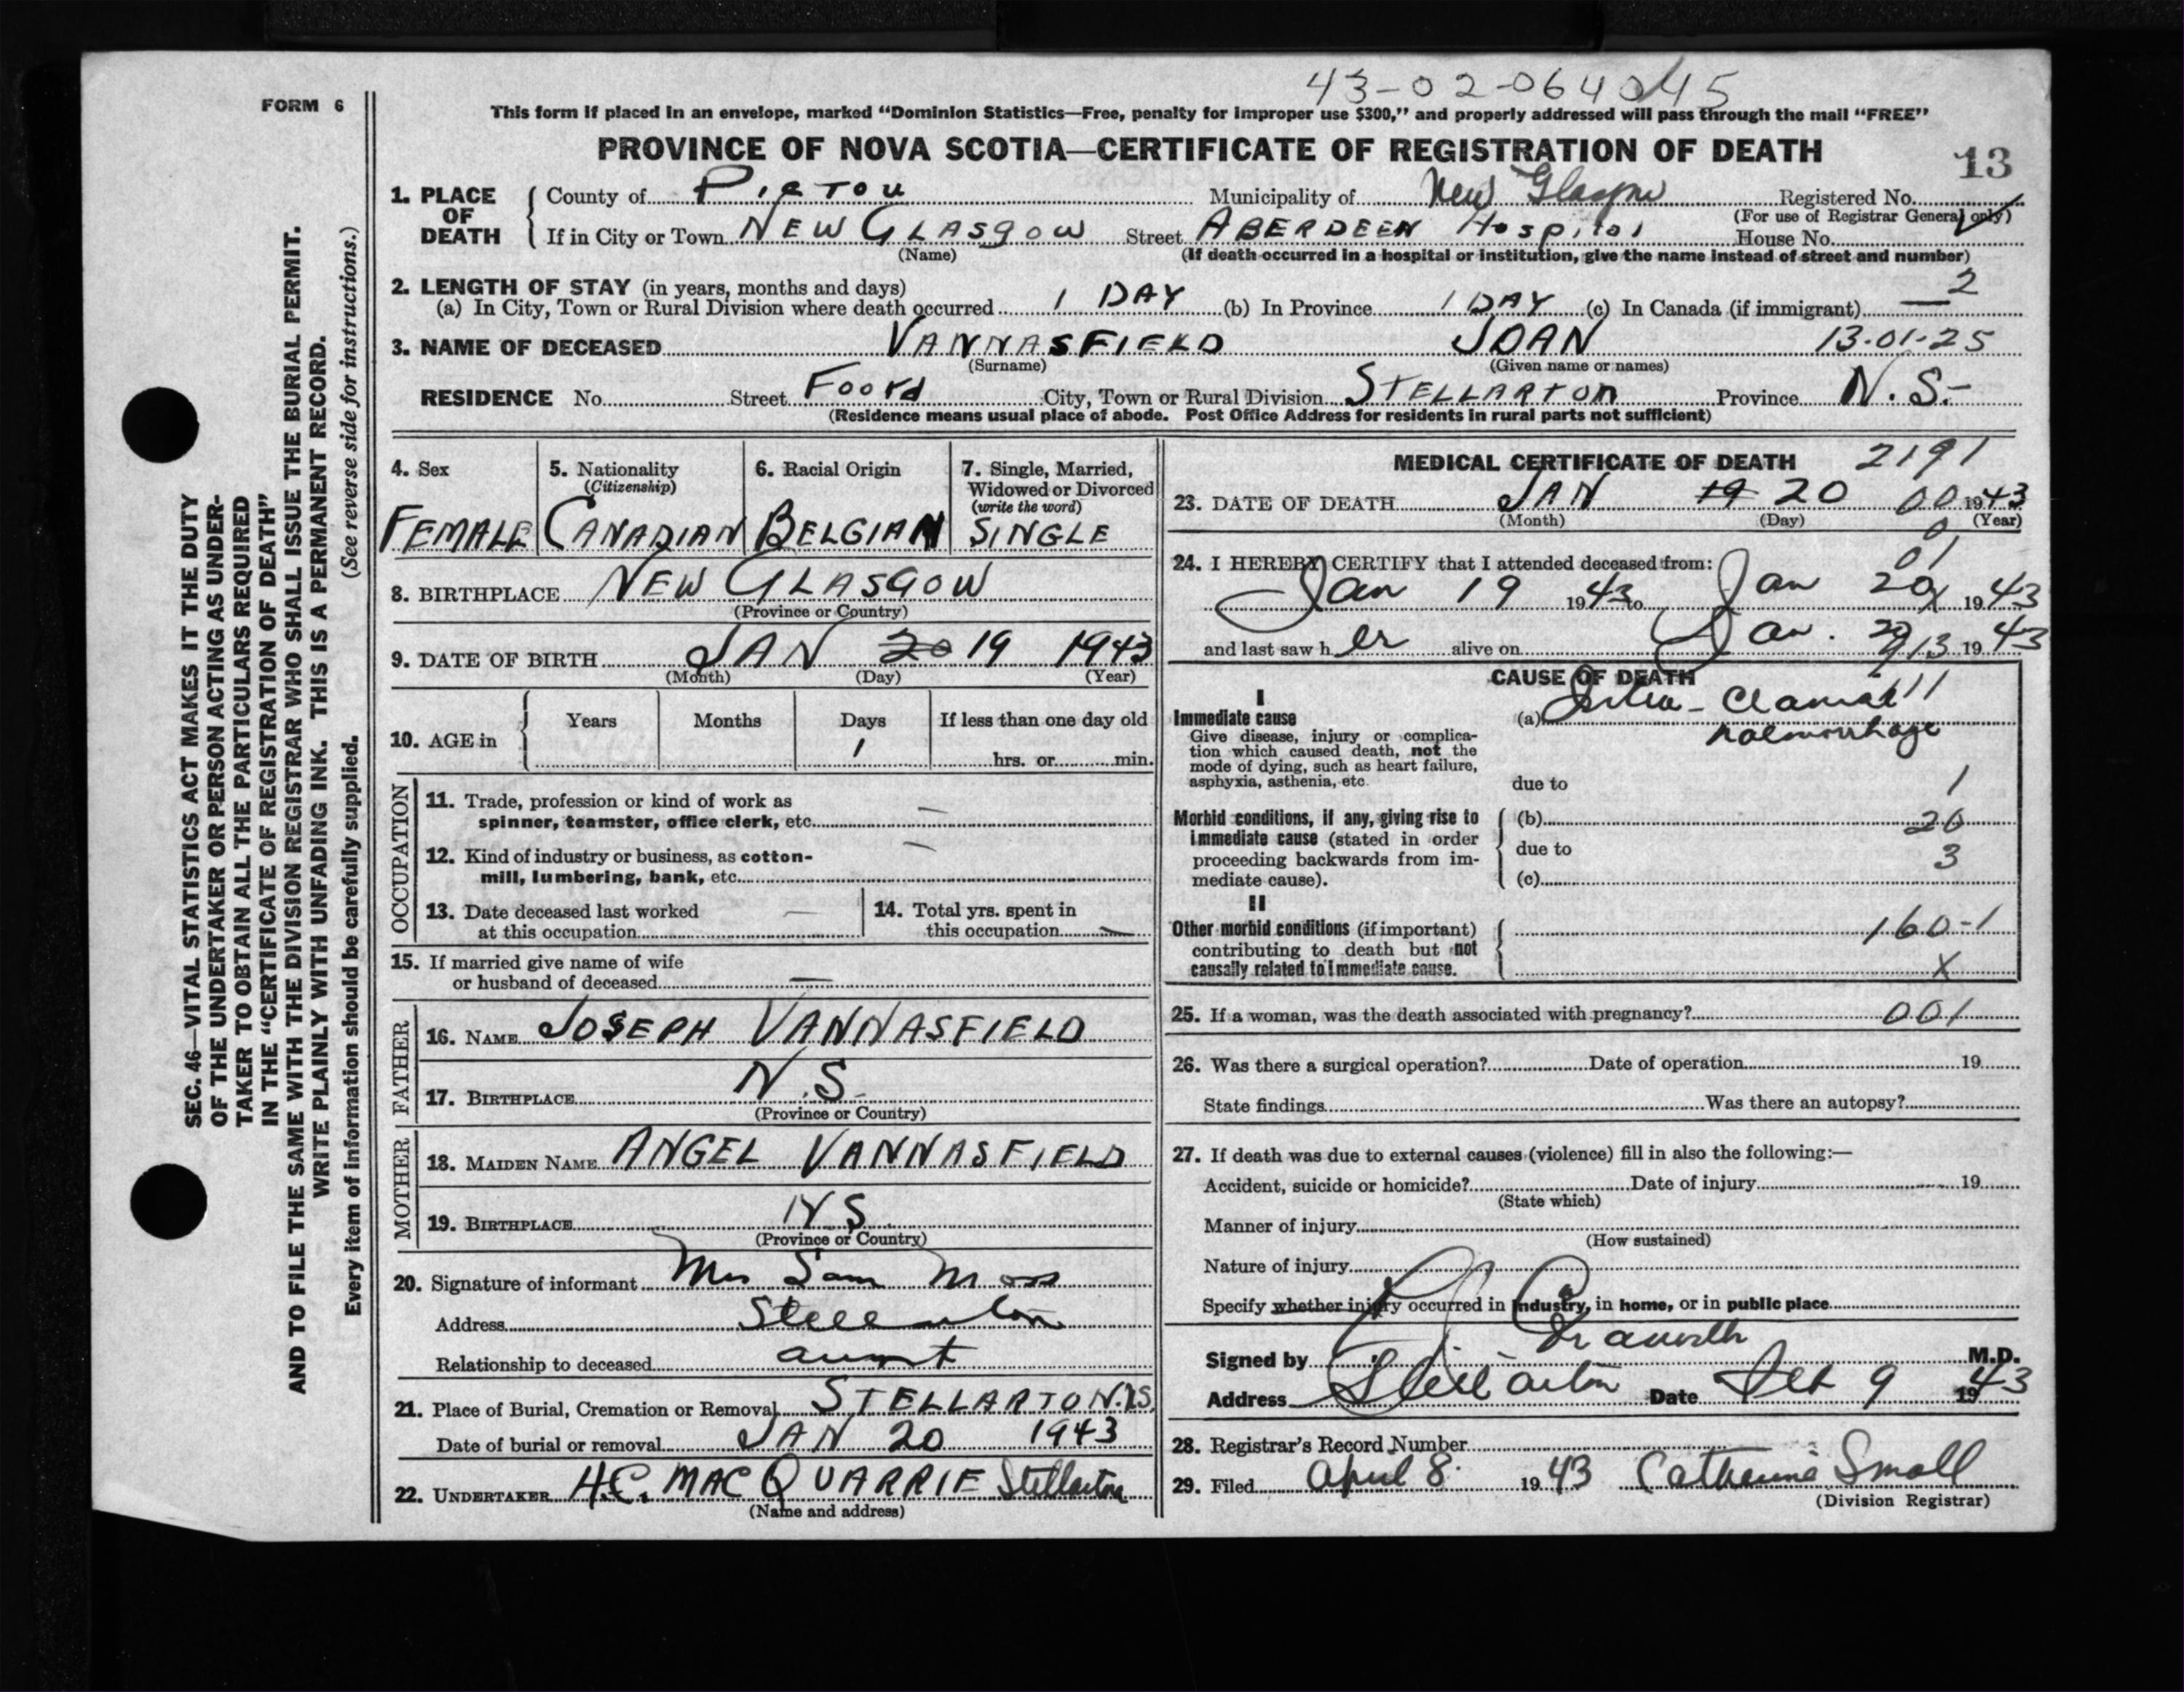 43-02-064045
FORM 6
This form if placed in an envelope, marked "Dominion Statistics—Free, penalty for improper use $300," and properly addressed will pass through the mail "FREE"
PROVINCE OF NOVA SCOTIA—CERTIFICATE OF REGISTRATION OF DEATH
13
1. PLACE OF DEATH
County of Pictou Municipality of New Glasgow Registered No.
(For use of Registrar General only)
If in City or Town NEW GLASGOW Street ABERDEEN Hospital House No.
(Name) (If death occurred in a hospital or institution, give the name instead of street and number)
2. LENGTH OF STAY (in years, months and days) 2
(a) In City, Town or Rural Division where death occurred 1 DAY (b) In Province 1 DAY (c) In Canada (if immigrant) —
3. NAME OF DECEASED VANNASFIELD JOAN 13-01-25
(Surname) (Given name or names)
RESIDENCE No. Street Foord City, Town or Rural Division STELLARTON Province N.S.-
(Residence means usual place of abode. Post Office Address for residents in rural parts not sufficient)
4. Sex
FEMALE
5. Nationality
(Citizenship)
CANADIAN
6. Racial Origin
BELGIAN
7. Single, Married,
Widowed or Divorced
(write the word)
SINGLE
8. BIRTHPLACE NEW GLASGOW
(Province or Country)
9. DATE OF BIRTH JAN 20 19 1943
(Month) (Day) (Year)
10. AGE in
Years Months Days If less than one day old
1
hrs. or min.
OCCUPATION
11. Trade, profession or kind of work as —
spinner, teamster, office clerk, etc.
12. Kind of industry or business, as cotton- —
mill, lumbering, bank, etc.
13. Date deceased last worked —
at this occupation
14. Total yrs. spent in
this occupation —
15. If married give name of wife
or husband of deceased —
FATHER
16. NAME JOSEPH VANNASFIELD
17. BIRTHPLACE N.S.
(Province or Country)
MOTHER
18. MAIDEN NAME ANGEL VANNASFIELD
19. BIRTHPLACE N S.
(Province or Country)
20. Signature of informant Mrs Sam Moss
Address Stellarton
Relationship to deceased aunt
21. Place of Burial, Cremation or Removal STELLARTON N.S.
Date of burial or removal JAN 20 1943
22. UNDERTAKER H.C. MACQUARRIE Stellarton
(Name and address)
MEDICAL CERTIFICATE OF DEATH 2191
23. DATE OF DEATH JAN 19 20 00 1943
(Month) (Day) (Year)
0
24. I HEREBY CERTIFY that I attended deceased from: 01
Jan 19 1943 to Jan 20 1943
and last saw her alive on Jan. 1943
CAUSE OF DEATH
I
Immediate cause
Give disease, injury or complica-
tion which caused death, not the
mode of dying, such as heart failure,
asphyxia, asthenia, etc.
(a)
haemorrhage
due to 1
Morbid conditions, if any, giving rise to
immediate cause (stated in order
proceeding backwards from im-
mediate cause).
(b) 20
due to 3
(c)
II
Other morbid conditions (if important)
contributing to death but not
causally related to immediate cause.
160-1
X
25. If a woman, was the death associated with pregnancy? 001
26. Was there a surgical operation? Date of operation 19
State findings Was there an autopsy?
27. If death was due to external causes (violence) fill in also the following:—
Accident, suicide or homicide? Date of injury 19
(State which)
Manner of injury
(How sustained)
Nature of injury
Specify whether injury occurred in industry, in home, or in public place
Signed by M.D.
Address Stellarton Date Feb 9 1943
28. Registrar's Record Number
29. Filed April 8. 1943 Catherine Small
(Division Registrar)
SEC. 46—VITAL STATISTICS ACT MAKES IT THE DUTY
OF THE UNDERTAKER OR PERSON ACTING AS UNDER-
TAKER TO OBTAIN ALL THE PARTICULARS REQUIRED
IN THE "CERTIFICATE OF REGISTRATION OF DEATH"
AND TO FILE THE SAME WITH THE DIVISION REGISTRAR WHO SHALL ISSUE THE BURIAL PERMIT.
WRITE PLAINLY WITH UNFADING INK. THIS IS A PERMANENT RECORD.
Every item of information should be carefully supplied. (See reverse side for instructions.)